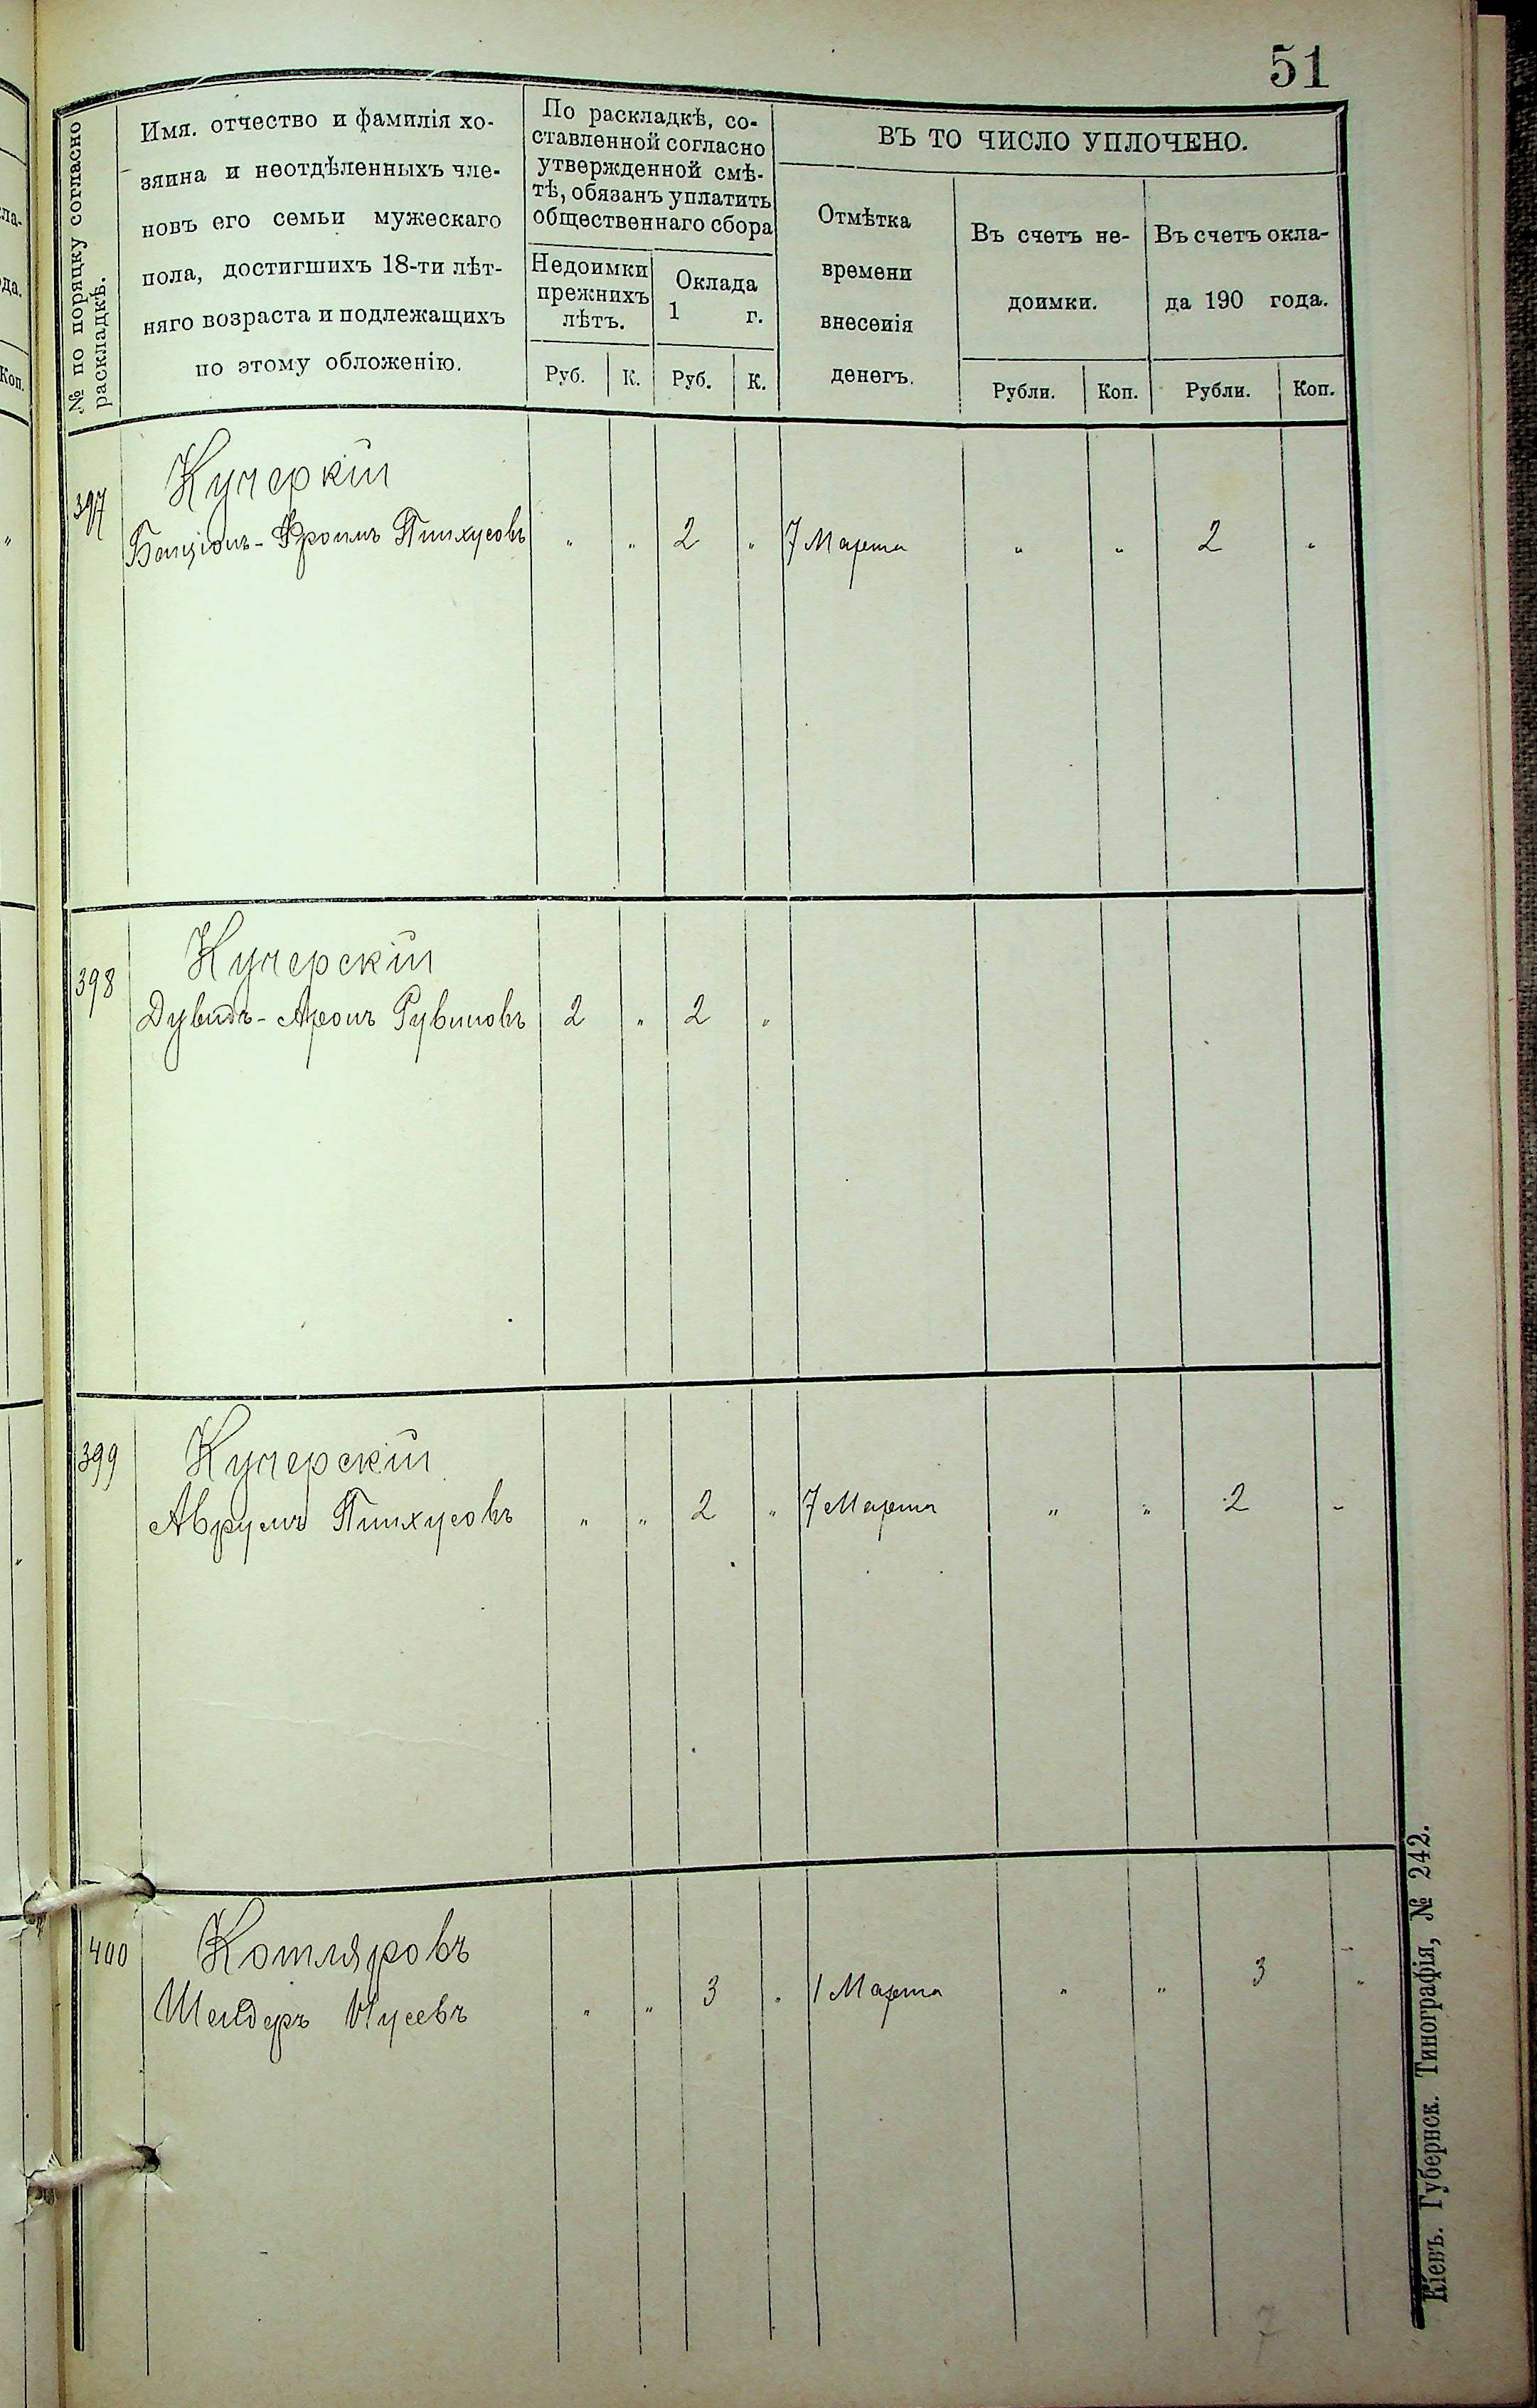 51
№ по поряцку согласно
раскладкѣ.
Имя. отчество и фамилія хо-
зяина и неотдѣленныхъ чле-
новъ его семьи мужескаго
пола, достигшихъ 18-ти лѣт-
няго возраста и подлежащихъ
по этому обложенію.
По раскладкѣ, со-
ставленной согласно
утвержденной смѣ-
тѣ, обязанъ уплатить
общественнаго сбора
Недоимки
прежнихъ
лѣтъ.
Оклада
1 г.
Руб. К. Руб. К.
ВЪ ТО ЧИСЛО УПЛОЧЕНО.
Отмѣтка
времени
внесенія
денегъ.
Въ счетъ не-
доимки.
Въ счетъ окла-
да 190 года.
Рубли. Коп. Рубли. Коп.
Кучеркій
397 Бенціонъ-Фроимъ Пинхусовъ " " 2 " 7 Марта " " 2 "
Кучерскій
398 Дувидъ-Аронъ Рувиновъ 2 " 2 "
Кучерскій
399 Аврумъ Пинхусовъ " " 2 " 7 Марта " " 2 -
Котляровъ
400 Шендеръ Нусевъ " " 3 " 1 Марта " " 3 "
Кіевъ. Губернск. Типографія, № 242.
7
ла-
да.
Коп.
"
"